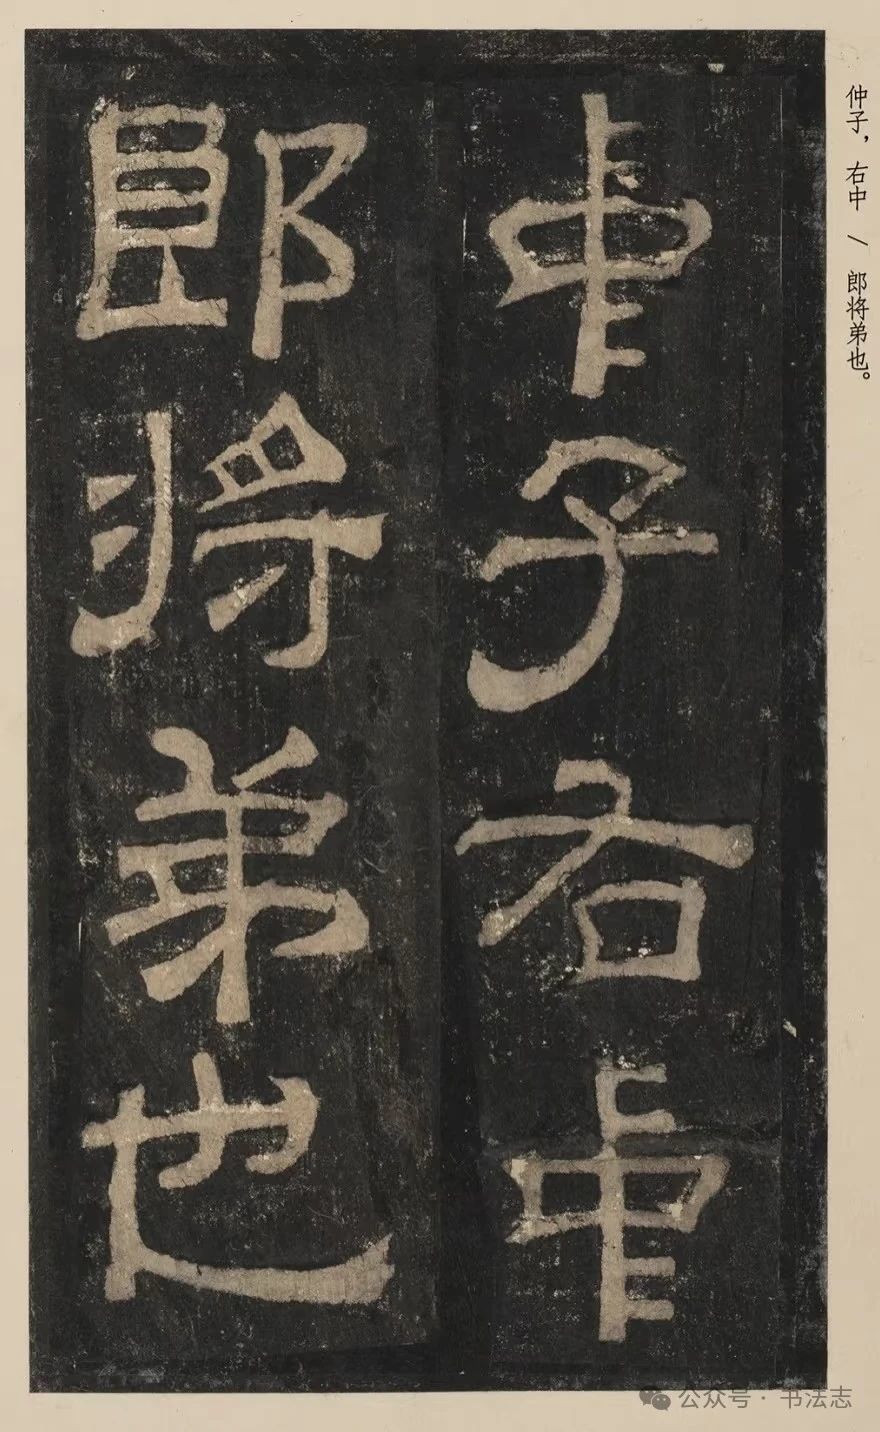 仲子，右中 / 郎将弟也。
中子右中
郎将弟也
公众号 · 书法志